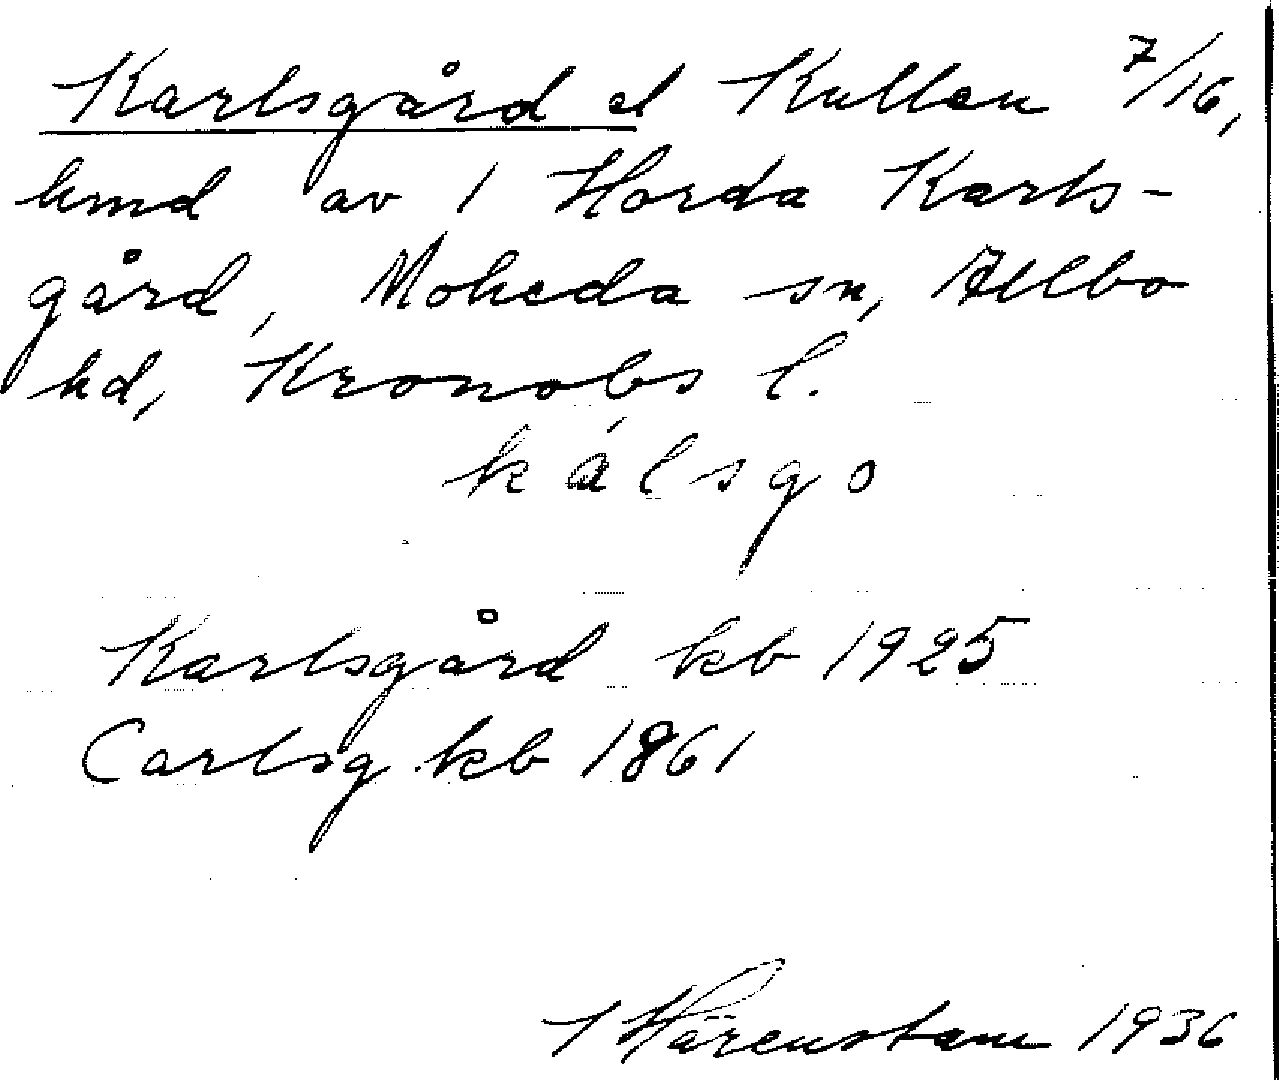 Karlsgård el Kullen 7/16,
hmd av 1 Horda Karls-
gård, Moheda sn, Allbo
hd, Kronobs l.
kálsgo
Karlsgård kb 1925
Carlsg kb 1861
Härenstam 1936